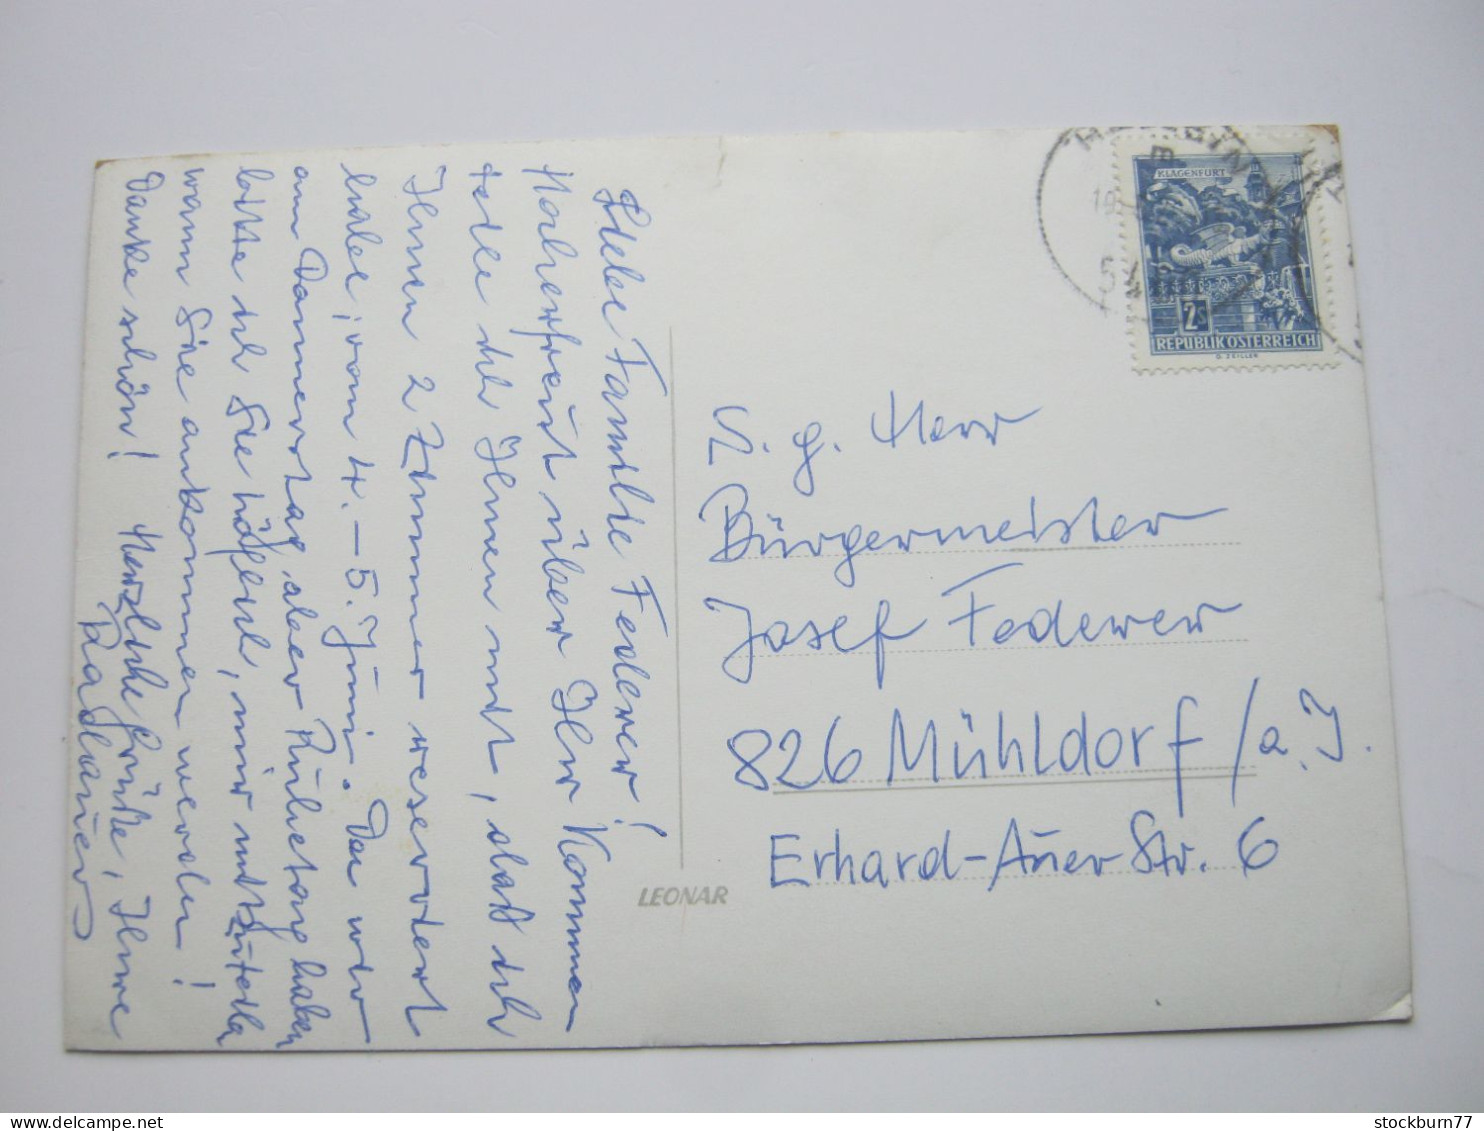 Liebe Familie Federer!
Hocherfreut über Ihr Kommen
teile ich Ihnen mit, daß ich
Ihnen 2 Zimmer reserviert
habe, vom 4. – 5. Juni. Da wir
am Donnerstag aber Ruhetag haben
bitte ich Sie höflich, mir mitzuteilen
wann Sie ankommen werden!
Danke schön! Herzliche Grüße, Ihre
KLAGENFURT
2S
REPUBLIK ÖSTERREICH
G. ZEILLER
S. g. Herr
Bürgermeister
Josef Federer
826 Mühldorf /a. I.
Erhard-Auer Str. 6
LEONAR
stockburn77